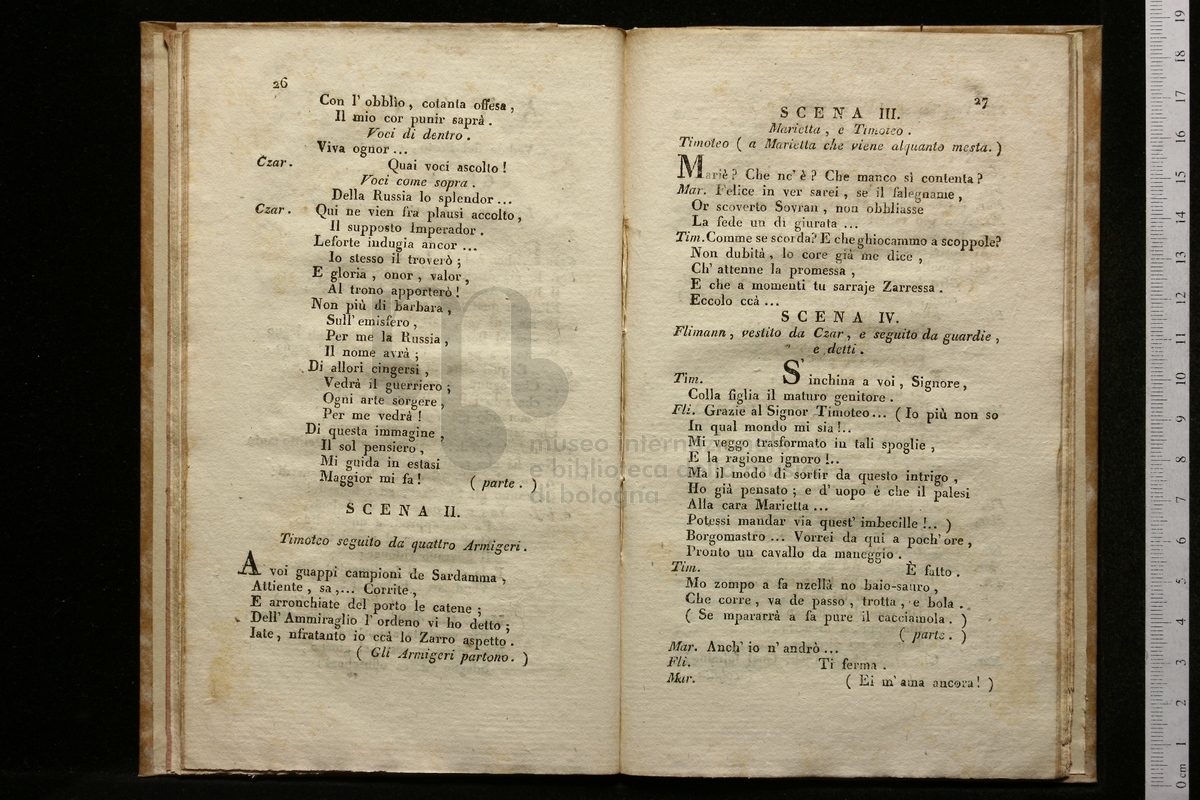 26
Con l' obblìo, cotanta offesa,
Il mio cor punir saprà.
Voci di dentro.
Viva ognor...
Czar. Quai voci ascolto!
Voci come sopra.
Della Russia lo splendor...
Czar. Qui ne vien fra plausi accolto,
Il supposto Imperador.
Leforte indugia ancor...
Io stesso il troverò;
E gloria, onor, valor,
Al trono apporterò!
Non più di barbara,
Sull' emisfero,
Per me la Russia,
Il nome avrà;
Di allori cingersi,
Vedrà il guerriero;
Ogni arte sorgere,
Per me vedrà!
Di questa immagine,
Il sol pensiero,
Mi guida in estasi
Maggior mi fa! (parte.)
SCENA II.
Timoteo seguito da quattro Armigeri.
A voi guappi campioni de Sardamma,
Attiente, sa,... Corrite,
E arronchiate del porto le catene;
Dell' Ammiraglio l' ordeno vi ho detto;
Iate, nfratanto io ccà lo Zarro aspetto.
(Gli Armigeri partono.)
27
SCENA III.
Marietta, e Timoteo.
Timoteo (a Marietta che viene alquanto mesta.)
Mariè? Che nc' è? Che manco sì contenta?
Mar. Felice in ver sarei, se il falegname,
Or scoverto Sovran, non obbliasse
La fede un dì giurata...
Tim. Comme se scorda? E che ghiocammo a scoppole?
Non dubità, lo core già me dice,
Ch' attenne la promessa,
E che a momenti tu sarraje Zarressa.
Eccolo ccà...
SCENA IV.
Flimann, vestito da Czar, e seguito da guardie,
e detti.
Tim. S' inchina a voi, Signore,
Colla figlia il maturo genitore.
Fli. Grazie al Signor Timoteo... (Io più non so
In qual mondo mi sia!..
Mi veggo trasformato in tali spoglie,
E la ragione ignoro!..
Ma il modo di sortir da questo intrigo,
Ho già pensato; e d' uopo è che il palesi
Alla cara Marietta...
Potessi mandar via quest' imbecille!..)
Borgomastro... Vorrei da qui a poch' ore,
Pronto un cavallo da maneggio.
Tim. È fatto.
Mo zompo a fa nzellà no baio-sauro,
Che corre, va de passo, trotta, e bola.
(Se mpararrà a fa pure il cacciamola.)
(parte.)
Mar. Anch' io n' andrò...
Fli. Ti ferma.
Mar. (Ei m' ama ancora!)